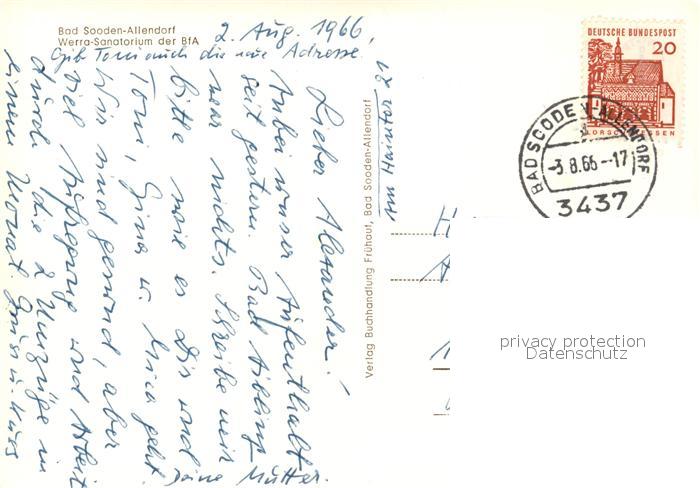 Bad Sooden-Allendorf
Werra-Sanatorium der BfA
2. Aug. 1966,
Gib Toni auch die neue Adresse.
Lieber Alexander!
Anbei unser Aufenthalt
seit gestern. Bad Aibling
war nichts. Schreibe mir
bitte wie es Dir und
Toni, Gina u. geht.
Wir sind gesund, aber
viel Aufregung und Arbeit
durch die 2 Umzüge in
einem Monat. Gruss u. Kuss
Deine Mutter.
Am Haintor 21
Verlag Buchhandlung Frühauf, Bad Sooden-Allendorf
DEUTSCHE BUNDESPOST
20
LORSCH/HESSEN
BAD SOODEN-ALLENDORF
-3.8.66-17
3437
privacy protection
Datenschutz